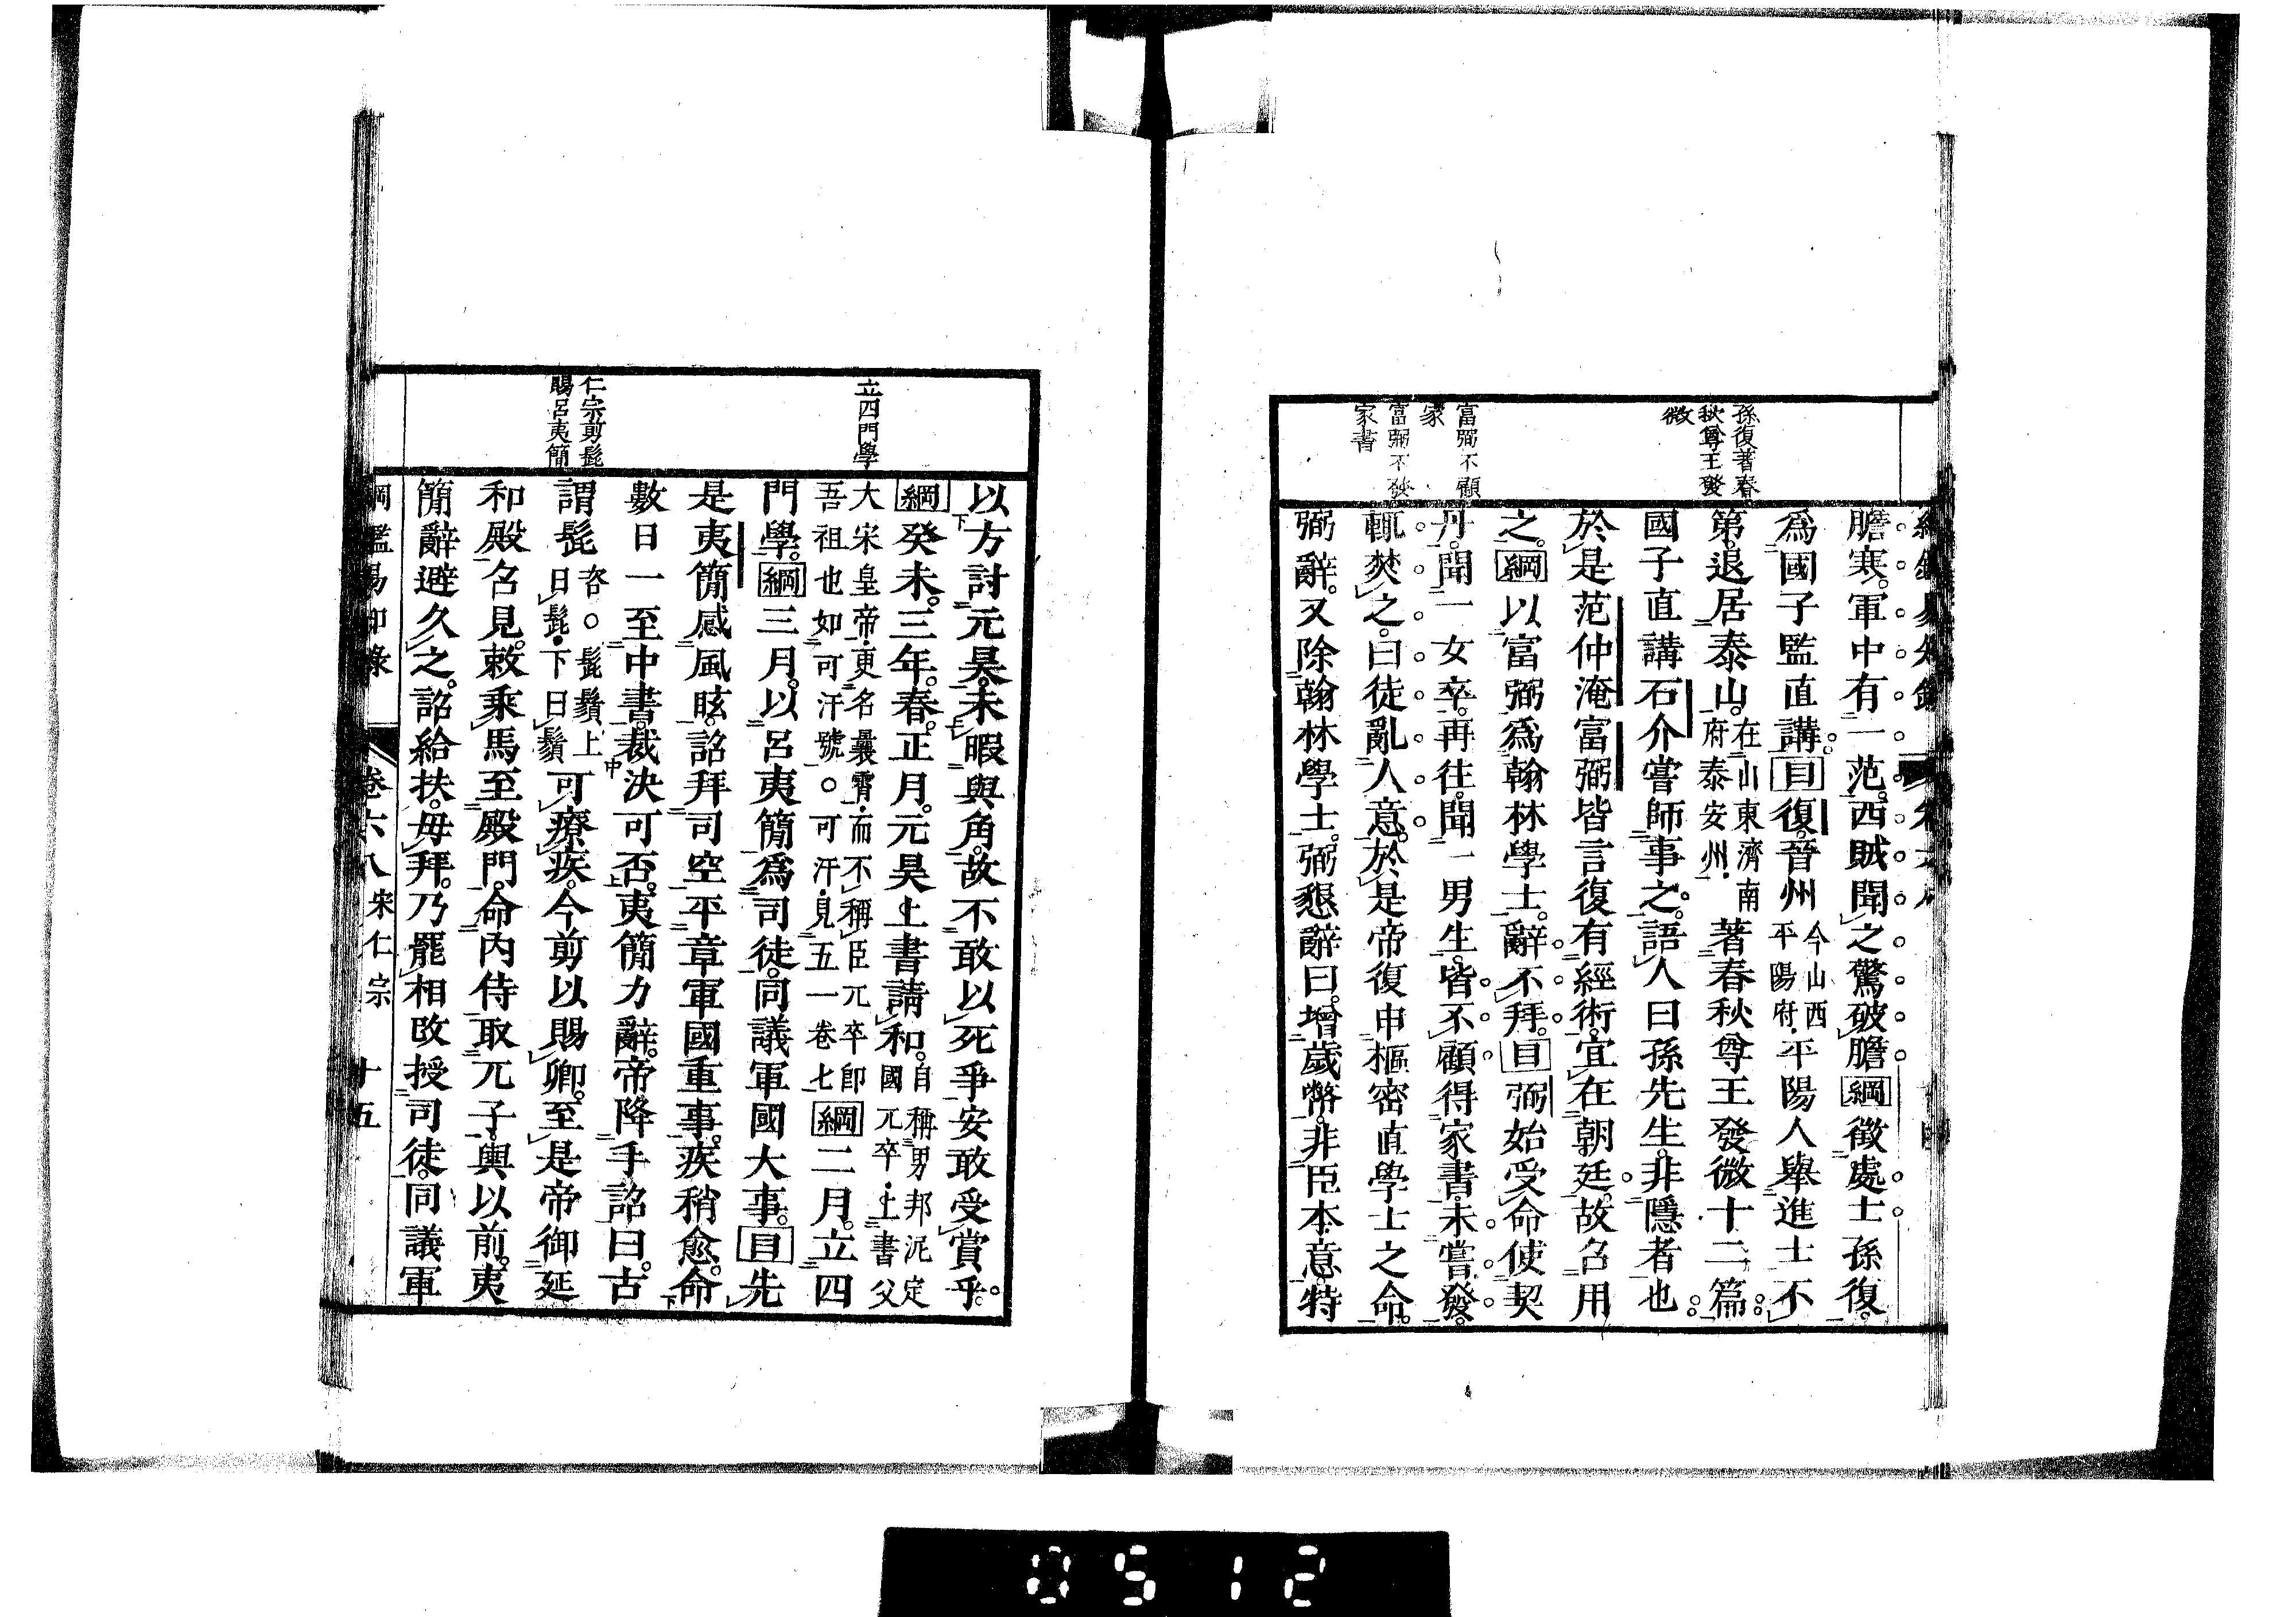 孫復著春
秋尊王發
微
富弼不顧
家
富弼不發
家書
膽寒。軍中有一范。西賊聞之驚破膽綱徵處士孫復。
爲國子監直講。目復。晉州今山西平陽府。平陽人舉進士不
第。退居泰山。在山東濟南府泰安州。著春秋尊王發微十二篇。
國子直講石介嘗師事之。語人曰孫先生。非隱者也
於是范仲淹富弼皆言復有經術。宜在朝廷。故召用
之。綱以富弼爲翰林學士。辭不拜。目弼始受命使契
丹。聞一女卒。再往。聞一男生。皆不顧。得家書。未嘗發。
輒焚之。曰徒亂人意。於是帝復申樞密直學士之命。
弼辭。又除翰林學士。弼懇辭曰。增歲幣。非臣本意。特
立四門學
仁宗剪髭
賜呂夷簡
以方討元昊。未暇與角。故不敢以死爭。安敢受賞乎。
綱癸未。三年。春。正月。元昊上書請和。自稱男邦泥定國兀卒。上書父
大宋皇帝。更名曩霄。而不稱臣兀卒卽吾祖也如可汗號。○可汗。見五一卷七綱二月。立四
門學。綱三月。以呂夷簡爲司徒。同議軍國大事。目先
是夷簡感風眩。詔拜司空平章軍國重事。疾稍愈。命
數日一至中書。裁決可否。夷簡力辭。帝降手詔曰。古
謂髭咨。○髭鬚上曰髭。下曰鬚可療疾。今剪以賜卿。至是帝御延
和殿召見。敕乘馬至殿門。命內侍取兀子。輿以前。夷
簡辭避久之。詔給扶。毋拜。乃罷相改授司徒。同議軍
綱鑑易知錄 卷六八 宋仁宗 十五
0512